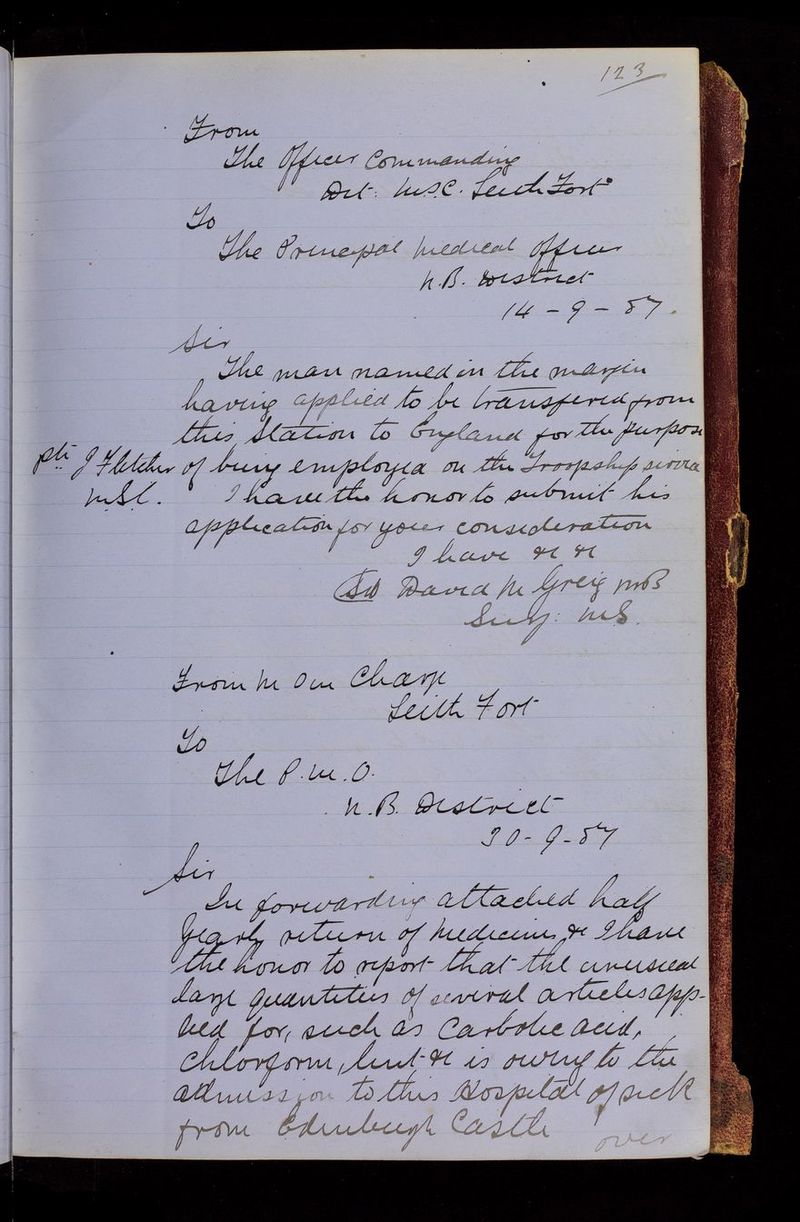 123
From
The Officer Commanding
Det: M.S.C. Leith Fort
To
The Principal Medical Officer
N.B. District
14 - 9 - 87.
Sir
The man named in the margin
having applied to be transfered from
this Station to England for the purpose
Pte J Fletcher of being employed on the Troopship
M.S.C. I have the honor to submit his
application for your consideration
I have &c &c
(Sd) David M Greig MB
Surg: M.S.
From M O in Charge
Leith Fort
To
The P.M.O.
N.B. District
30 - 9 - 87
Sir
In forwarding attached half
Yearly return of Medicines &c I have
the honor to report that the unusual
large quantities of several articles app-
lied for, such as Carbolic acid,
Chloroform, lint &c is owing to the
admission to this Hospital of sick
from Edinburgh Castle
over